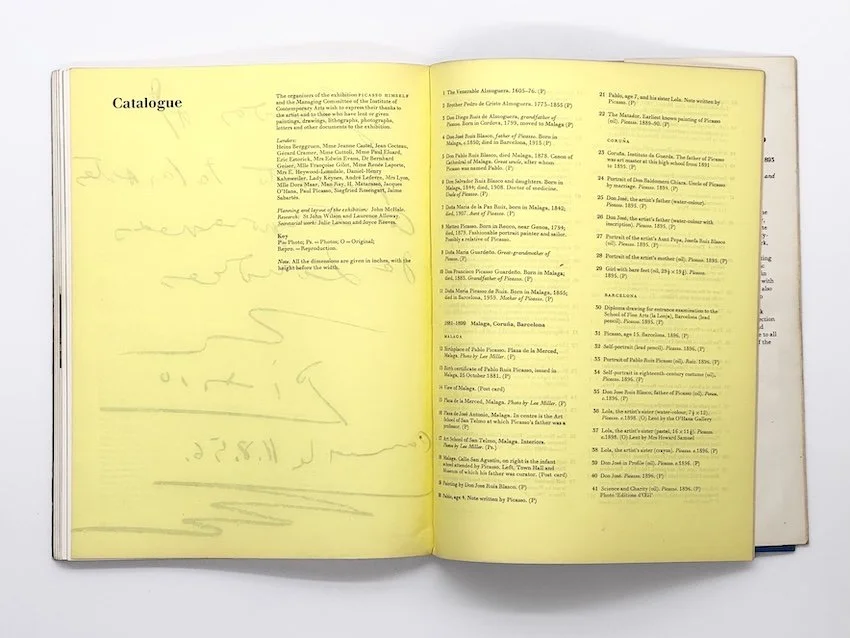 Catalogue
The organisers of the exhibition PICASSO HIMSELF
and the Managing Committee of the Institute of
Contemporary Arts wish to express their thanks to
the artist and to those who have lent or given
paintings, drawings, lithographs, photographs,
letters and other documents to the exhibition.
Lenders:
Heinz Berggruen, Mme Jeanne Castel, Jean Cocteau,
Gérard Cramer, Mme Cuttoli, Mme Paul Eluard,
Eric Estorick, Mrs Edwin Evans, Dr Bernhard
Geiser, Mlle Françoise Gilot, Mme Renée Laporte,
Mrs E. Heywood-Lonsdale, Daniel-Henry
Kahnweiler, Lady Keynes, André Lefèvre, Mrs Lynn,
Mlle Dora Maar, Man Ray, H. Matarasso, Jacques
O'Hana, Paul Picasso, Siegfried Rosengart, Jaime
Sabartés.
Planning and layout of the exhibition: John McHale.
Research: St John Wilson and Laurence Alloway.
Secretarial work: Julie Lawson and Joyce Reeves.
Key
P = Photo; Ps. = Photos; O = Original;
Repro. = Reproduction.
Note. All the dimensions are given in inches, with the
height before the width.
1 The Venerable Almoguera. 1605-76. (P)
2 Brother Pedro de Cristo Almoguera. 1773-1855 (P)
3 Don Diego Ruiz de Almoguera, grandfather of
Picasso. Born in Cordova, 1799, moved to Malaga (P)
4 Don José Ruiz Blasco, father of Picasso. Born in
Malaga, c.1850; died in Barcelona, 1913 (P)
5 Don Pablo Ruiz Blasco, died Malaga, 1878. Canon of
Cathedral of Malaga. Great uncle, after whom
Picasso was named Pablo. (P)
6 Don Salvador Ruiz Blasco and daughters. Born in
Malaga, 1844; died, 1908. Doctor of medicine.
Uncle of Picasso. (P)
7 Doña Maria de la Paz Ruiz, born in Malaga, 1842;
died, 1907. Aunt of Picasso. (P)
8 Matteo Picasso. Born in Recco, near Genoa, 1794;
died, 1879. Fashionable portrait painter and sailor.
Possibly a relative of Picasso.
9 Doña Maria Guardeño. Great-grandmother of
Picasso. (P)
10 Don Francisco Picasso Guardeño. Born in Malaga;
died, 1883. Grandfather of Picasso. (P)
11 Doña Maria Picasso de Ruiz. Born in Malaga, 1855;
died in Barcelona, 1939. Mother of Picasso. (P)
1881-1899 Malaga, Coruña, Barcelona
MALAGA
12 Birthplace of Pablo Picasso, Plaza de la Merced,
Malaga. Photo by Lee Miller. (P)
13 Birth certificate of Pablo Ruiz Picasso, issued in
Malaga, 25 October 1881. (P)
14 View of Malaga. (Post card)
15 Plaza de la Merced, Malaga. Photo by Lee Miller. (P)
16 Plaza de José Antonio, Malaga. In centre is the Art
School of San Telmo at which Picasso's father was a
professor. (P)
17 Art School of San Telmo, Malaga. Interiors.
Photo by Lee Miller. (Ps.)
18 Malaga. Calle San Agustin, on right is the infant
school attended by Picasso. Left, Town Hall and
Museum of which his father was curator. (Post card)
19 Painting by Don Jose Ruiz Blasco. (P)
20 Pablo, age 4. Note written by Picasso. (P)
21 Pablo, age 7, and his sister Lola. Note written by
Picasso. (P)
22 The Matador. Earliest known painting of Picasso
(oil). Picasso. 1889-90. (P)
CORUÑA
23 Coruña. Instituto da Guarda. The father of Picasso
was art master at this high school from 1891
to 1895. (P)
24 Portrait of Don Baldomero Chiara. Uncle of Picasso
by marriage. Picasso. 1894. (P)
25 Don José, the artist's father (water-colour).
Picasso. 1895. (P)
26 Don José, the artist's father (water-colour with
inscription). Picasso. 1895. (P)
27 Portrait of the artist's Aunt Pepa, Josefa Ruiz Blasco
(oil). Picasso. 1895. (P)
28 Portrait of the artist's mother (oil). Picasso. 1895. (P)
29 Girl with bare feet (oil,
Picasso. 1895. (P)
BARCELONA
30 Diploma drawing for entrance examination to the
School of Fine Arts (la Lonja), Barcelona (lead
pencil). Picasso. 1895. (P)
31 Picasso, age 15, Barcelona, 1896. (P)
32 Self-portrait (lead pencil). Picasso. 1896. (P)
33 Portrait of Pablo Ruiz Picasso (oil). Ruiz. 1896. (P)
34 Self-portrait in eighteenth-century costume (oil).
Picasso. 1896. (P)
35 Don Jose Ruiz Blasco, father of Picasso (oil).
c.1896. (P)
36 Lola, the artist's sister (water-colour,
Picasso.
c.1898. (O) Lent by the O'Hana Gallery
37 Lola, the artist's sister (pastel,
Picasso.
c.1898. (O) Lent by Mrs Howard Samuel
38 Lola, the artist's sister (crayon). Picasso. c.1896. (P)
39 Don José in Profile (oil). Picasso. c.1896. (P)
40 Don José. Picasso. 1896. (P)
41 Science and Charity (oil). Picasso. 1896. (P)
Photo 'Editions d'Œil'